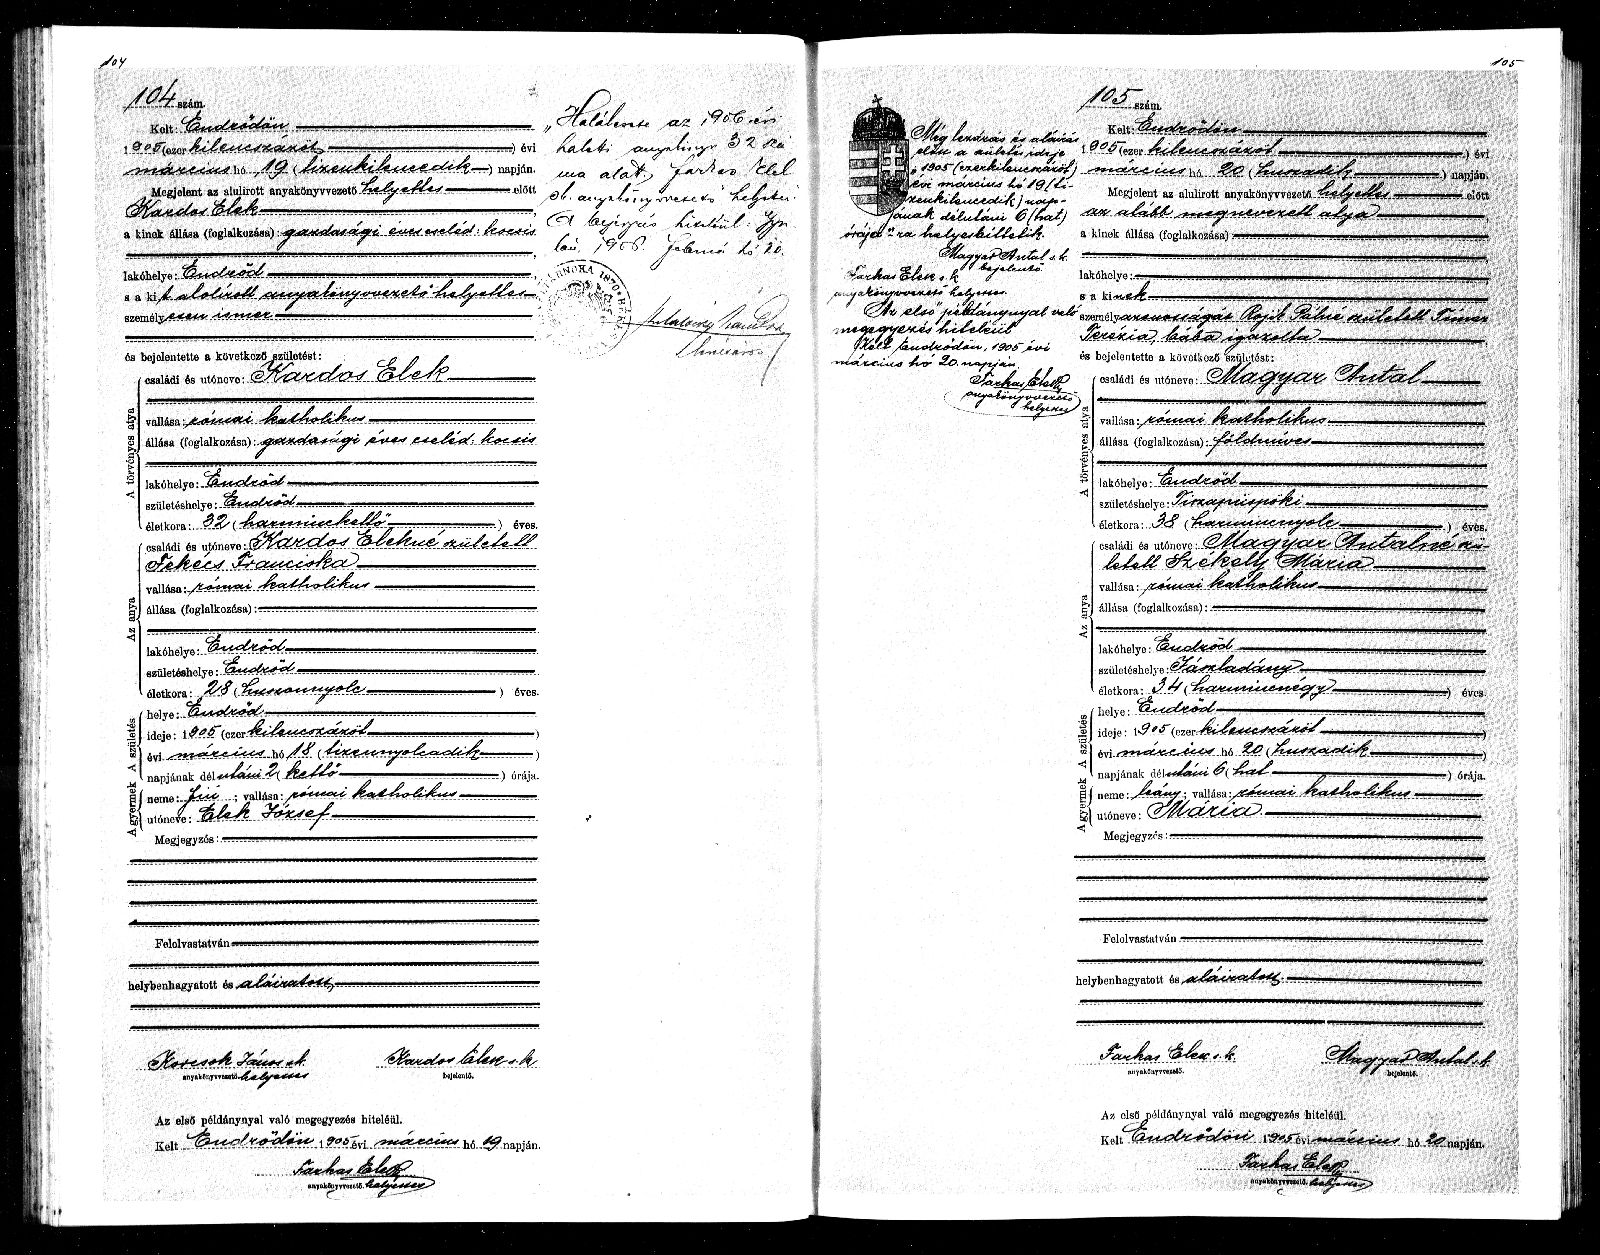 104
104 szám.
Kelt: Endrődön,
1905 (ezer kilencszázöt) évi
március hó 19 (tizenkilencedik) napján.
Megjelent az alulirott anyakönyvvezető helyettes előtt
Kardos Elek
a kinek állása (foglalkozása): gazdasági éves cseléd: kocsis
lakóhelye: Endrőd
s a kit alolírott anyakönyvvezető helyettes
személyesen ismer
és bejelentette a következő születést:
A törvényes atya
családi és utóneve: Kardos Elek
vallása: római katholikus
állása (foglalkozása): gazdasági éves cseléd: kocsis
lakóhelye: Endrőd
születéshelye: Endrőd
életkora: 32 (harminckettő) éves.
Az anya
családi és utóneve: Kardos Elekné született
Fekécs Franciska
vallása: római katholikus
állása (foglalkozása):
lakóhelye: Endrőd
születéshelye: Endrőd
életkora: 28 (huszonnyolc) éves.
A születés
helye: Endrőd
ideje: 1905 (ezer kilencszázöt)
évi március hó 18 (tizennyolcadik)
napjának délutáni 2 (kettő) órája.
A gyermek
neme: fiú; vallása: római katholikus
utóneve: Elek József
Megjegyzés:
Felolvastatván
helybenhagyatott és aláiratott,
Korcsok János sk. Kardos Elek s.k
anyakönyvvezető helyettes bejelentő.
Az első példánynyal való megegyezés hiteléül.
Kelt Endrődön 1905 évi március hó 19 napján.
Farkas Elek
anyakönyvvezető helyettes
„Halálesete az 1906 évi
halotti anyakönyv 32 szá
ma alatt. Farkas Elek
st. anyakönyvvezető helyettes.
A bejegyzés hiteléül. Gyu-
la, 1906. február hó 20.
105
Még lezárás és aláírás
előtt a születés ideje
„1905 (ezerkilencszázöt)
évi március hó 19 (ti-
zenkilencedik) nap-
jának délutáni 6 (hat)
órája"-ra helyesbíttetik.
Magyar Antal s.k.
bejelentő
Farkas Elek s.k.
anyakönyvvezető helyettes.
Az első példánynyal való
megegyezés hiteléül
Kelt Endrődön, 1905 évi
március hó 20 napján.
Farkas Elek
anyakönyvvezető
helyettes
105 szám.
Kelt: Endrődön
1905 (ezer kilencszázöt) évi
március hó 20 (huszadik) napján.
Megjelent az alulirott anyakönyvvezető helyettes előtt
az alább megnevezett atya
a kinek állása (foglalkozása)
lakóhelye:
s a kinek
személyazonosságát Rojik Pálné született Tímár
Terézia, bába igazolta
és bejelentette a következő születést:
A törvényes atya
családi és utóneve: Magyar Antal
vallása: római katholikus
állása (foglalkozása): földmíves
lakóhelye: Endrőd
születéshelye: Tiszapüspöki
életkora: 38 (harmincnyolc) éves.
Az anya
családi és utóneve: Magyar Antalné szü-
letett Székely Mária
vallása: római katholikus
állása (foglalkozása):
lakóhelye: Endrőd
születéshelye: Jászladány
életkora: 34 (harmincnégy) éves.
A születés
helye: Endrőd
ideje: 1905 (ezer kilencszázöt
évi március hó 20 (huszadik
napjának délutáni 6 (hat) órája.
A gyermek
neme: leány; vallása: római katholikus
utóneve: Mária
Megjegyzés:
Felolvastatván
helybenhagyatott és aláiratott,
Farkas Elek s.k. Magyar Antal s.k.
anyakönyvvezető. bejelentő.
Az első példánynyal való megegyezés hiteléül.
Kelt Endrődön 1905 évi március hó 20 napján.
Farkas Elek
anyakönyvvezető helyettes